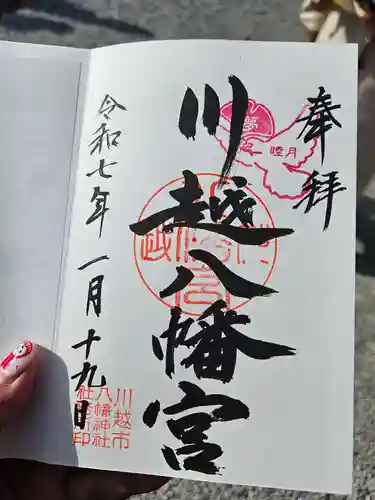 奉拝
夢
睦月
川越八幡宮
令和七年一月十九日
川越市
八幡神社